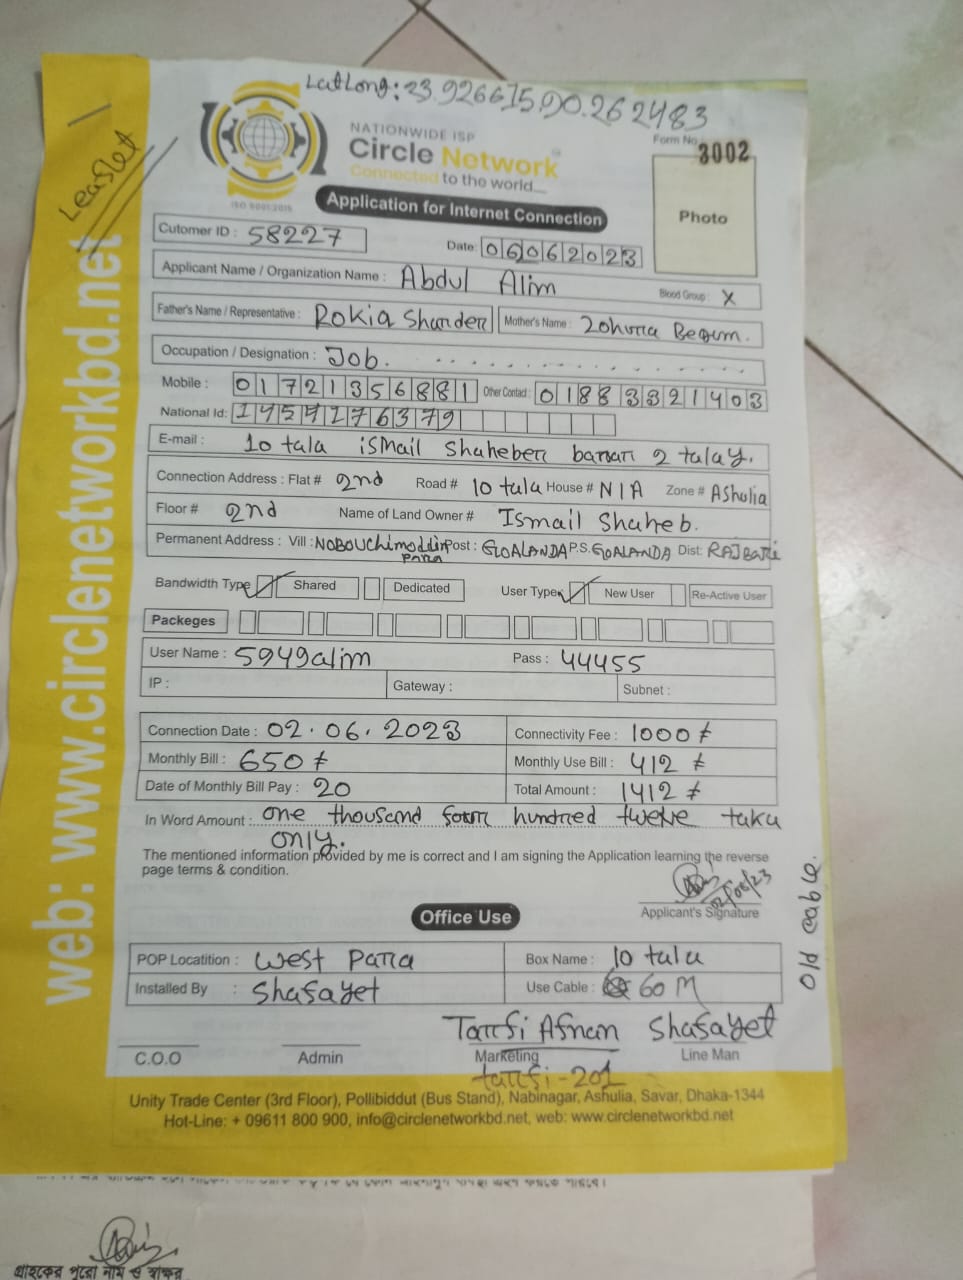 LatLong: 23.926615,90.262483
NATIONWIDE ISP
Circle Network
Connected to the world...
ISO 9001:2015
Form No 3002
Photo
Leaflet
web: www.circlenetworkbd.net
Application for Internet Connection
Cutomer ID : 58227
Date: 06062023
Applicant Name / Organization Name : Abdul Alim
Blood Group : X
Father's Name / Representative : Rokia Shunder
Mother's Name : Zohura Begum.
Occupation / Designation : Job.
Mobile : 01721356881 Other Contact : 01883321403
National Id:
E-mail : 10 tala ismail Shaheber barari 2 talay.
Connection Address : Flat # 2nd Road # 10 tala House # N/A Zone # Ashulia
Floor # 2nd Name of Land Owner # Ismail Shaheb.
Permanent Address : Vill : Nobouchimoddin Para Post : GOALANDA P.S. GOALANDA Dist: RAJBARI
Bandwidth Type Shared Dedicated User Type New User Re-Active User
Packeges
User Name : 5949alim Pass : 44455
IP : Gateway : Subnet :
Connection Date : 02.06.2023 Connectivity Fee : 1000 ৳
Monthly Bill : 650 ৳ Monthly Use Bill : 412 ৳
Date of Monthly Bill Pay : 20 Total Amount : 1412 ৳
In Word Amount : one thousand four hundred twelve taka
only.
The mentioned information provided by me is correct and I am signing the Application learning the reverse
page terms & condition.
02/06/23
Applicant's Signature
Office Use
POP Locatition : West Para Box Name : 10 tala
Installed By : Shafayet Use Cable : 60 M
Old Cable.
Tarifi Afnan Shafayet
C.O.O Admin Marketing Line Man
tarifi-201
Unity Trade Center (3rd Floor), Pollibiddut (Bus Stand), Nabinagar, Ashulia, Savar, Dhaka-1344
Hot-Line: + 09611 800 900, info@circlenetworkbd.net, web: www.circlenetworkbd.net
গ্রাহকের পুরো নাম ও স্বাক্ষর